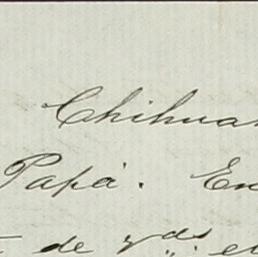 Chihua
Papá. En
de yds. e